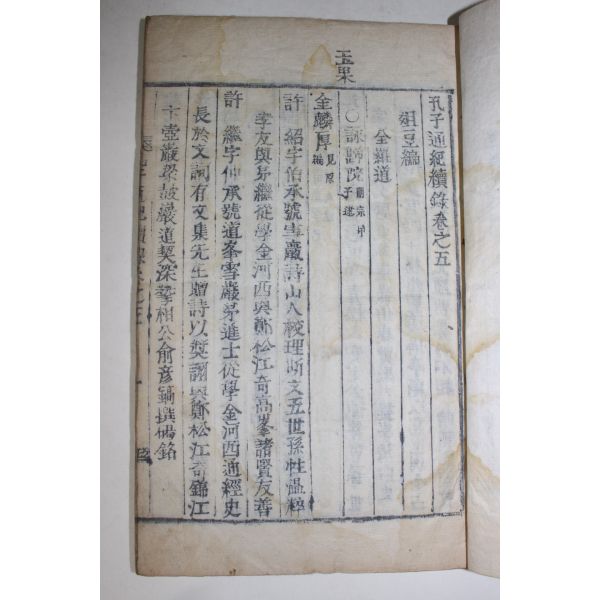 玉果
孔子通紀續錄卷之五
俎豆編
全羅道
○詠歸院 肅宗甲子建
金麟厚 見原編
許紹字伯承號雪巖詩山人校理斯文五世孫性溫粹
孝友與弟繼從學金河西與鄭松江奇高峯諸賢友善
許繼字仲承號道峯雪巖弟進士從學金河西通經史
長於文詞有文集先生贈詩以奬詡與鄭松江奇錦江
卞壺巖梁鼓巖道契深摯相公俞彦鎬撰碣銘